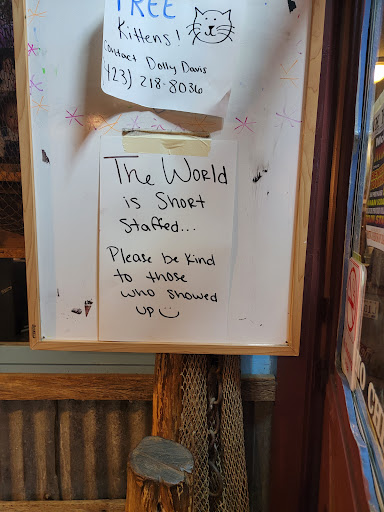 FREE
Kittens!
Contact Dolly Davis
(423) 218-8036
The World
is Short
Staffed...
Please be kind
to those
who showed
up